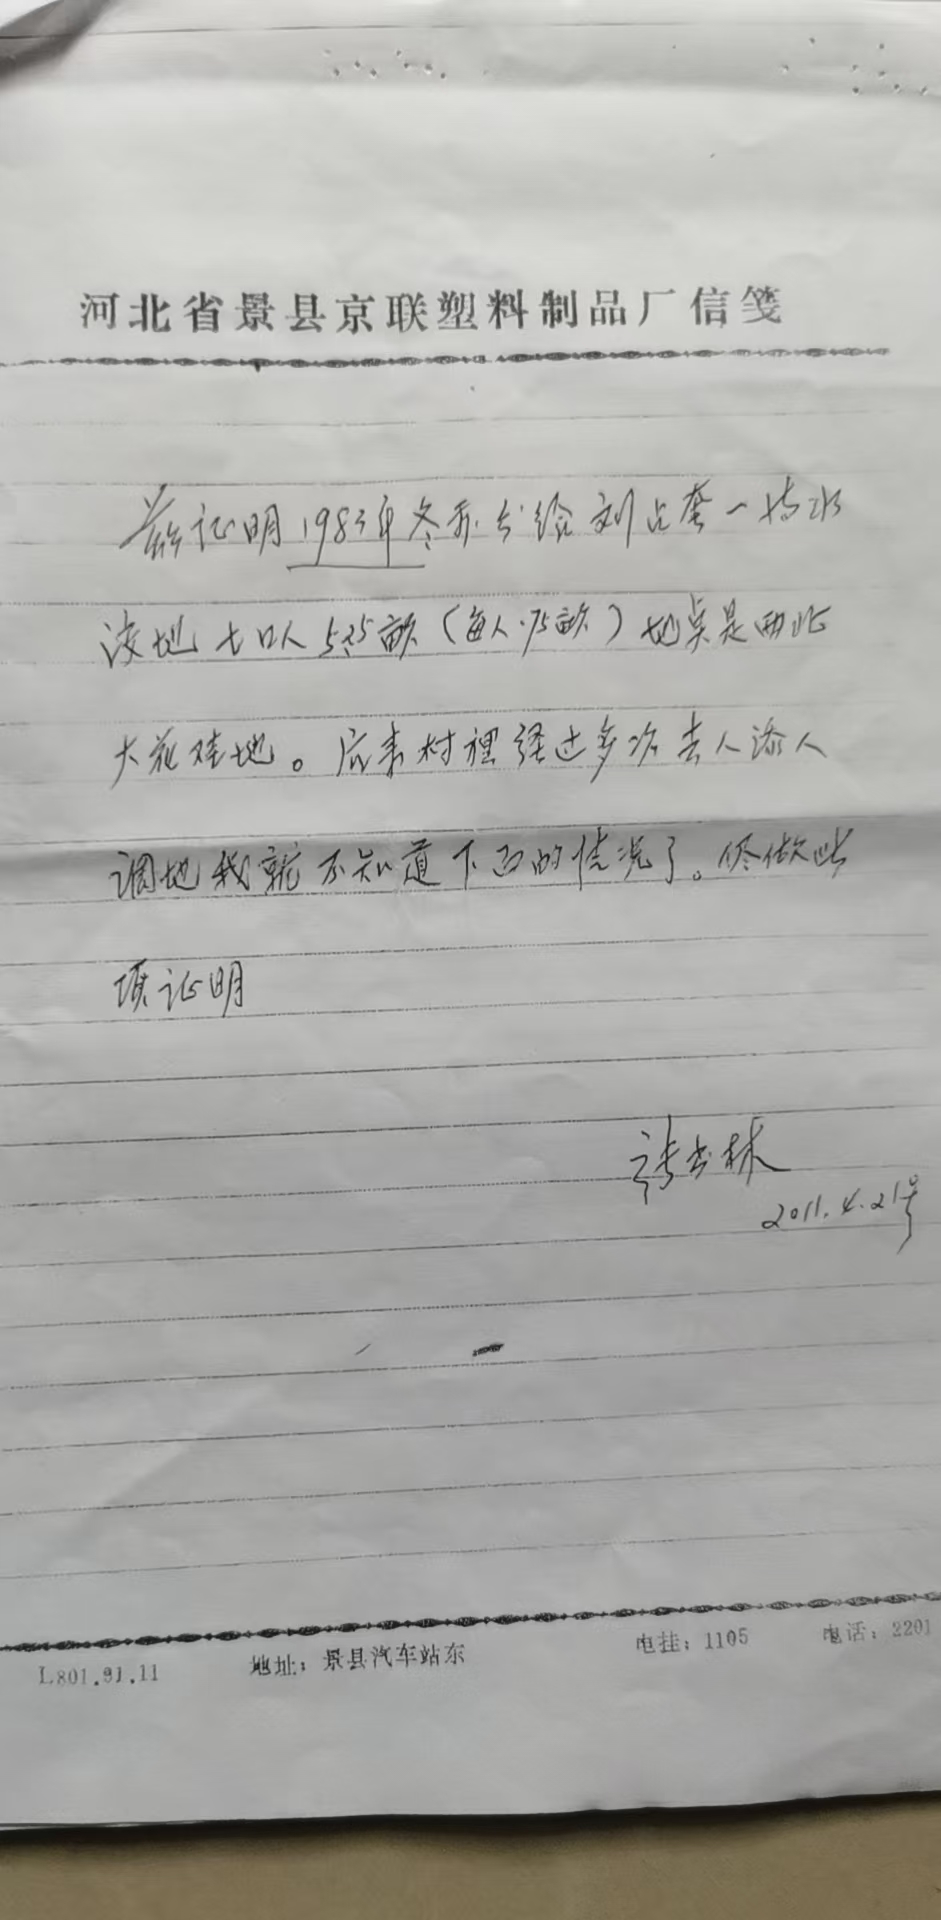 河北省景县京联塑料制品厂信笺
兹证明1983年冬天分给刘占奎一块水
浇地七口人5.25亩（每人.75亩）地点是西北
大花洼地。后来村裡经过多次去人添人
调地我就不知道下面的情况了。修做此
项证明
张书林
2011.4.21号
L801.91.11 地址：景县汽车站东 电挂：1105 电话：2201